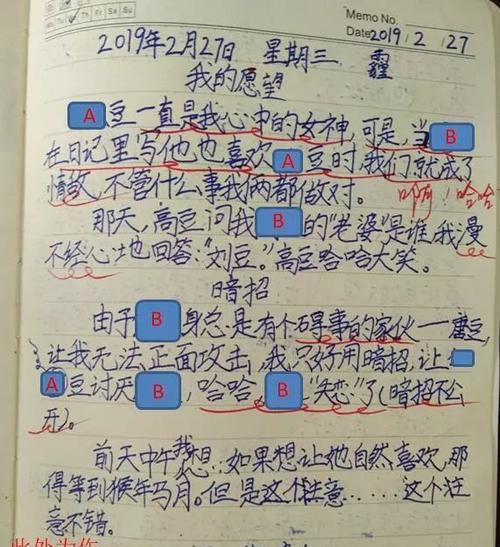 Memo No.
Mo Tu We Th Fr Sa Su
Date 2019 / 2 / 27
2019年2月27日 星期三 霾
我的愿望
A豆一直是我心中的女神,可是,当B
在日记里写他也喜欢A豆时,我们就成了
情敌,不管什么事我俩都做对。
哈哈
那天,高豆问我B的"老婆"是谁,我漫
不经心地回答:"刘豆。"高豆哈哈大笑。
暗招
由于B身总是有个碍事的家伙——唐豆,
让我无法正面攻击,我只好用暗招,让
A豆讨厌B,哈哈,B"失恋"了(暗招不公
开)。
前天中午我想:如果想让她自然喜欢,那
得等到猴年马月。但是这个注意……这个注
意不错。